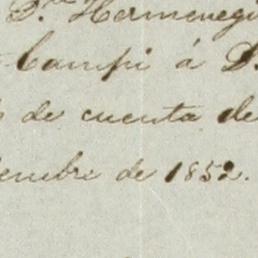 Dn. Hermenegi
Campi á D.
de cuenta de
iembre de 1852.